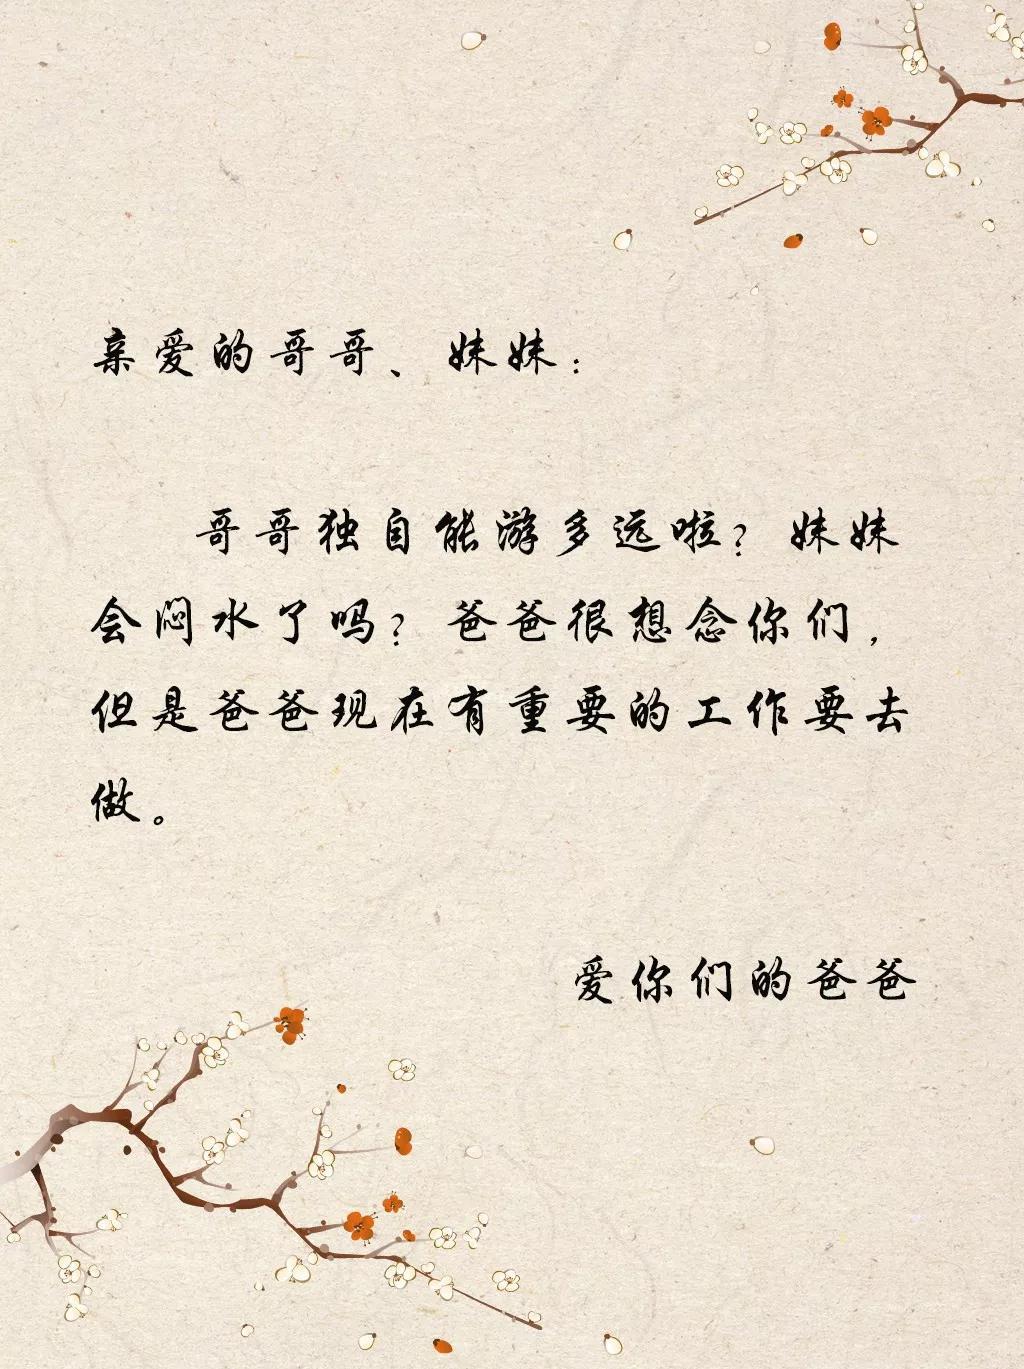 亲爱的哥哥、妹妹：
哥哥独自能游多远啦？妹妹
会闷水了吗？爸爸很想念你们，
但是爸爸现在有重要的工作要去
做。
爱你们的爸爸